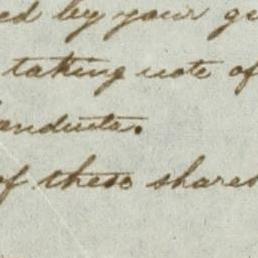 ed by your gu
taking note of
conducta.
of these shares